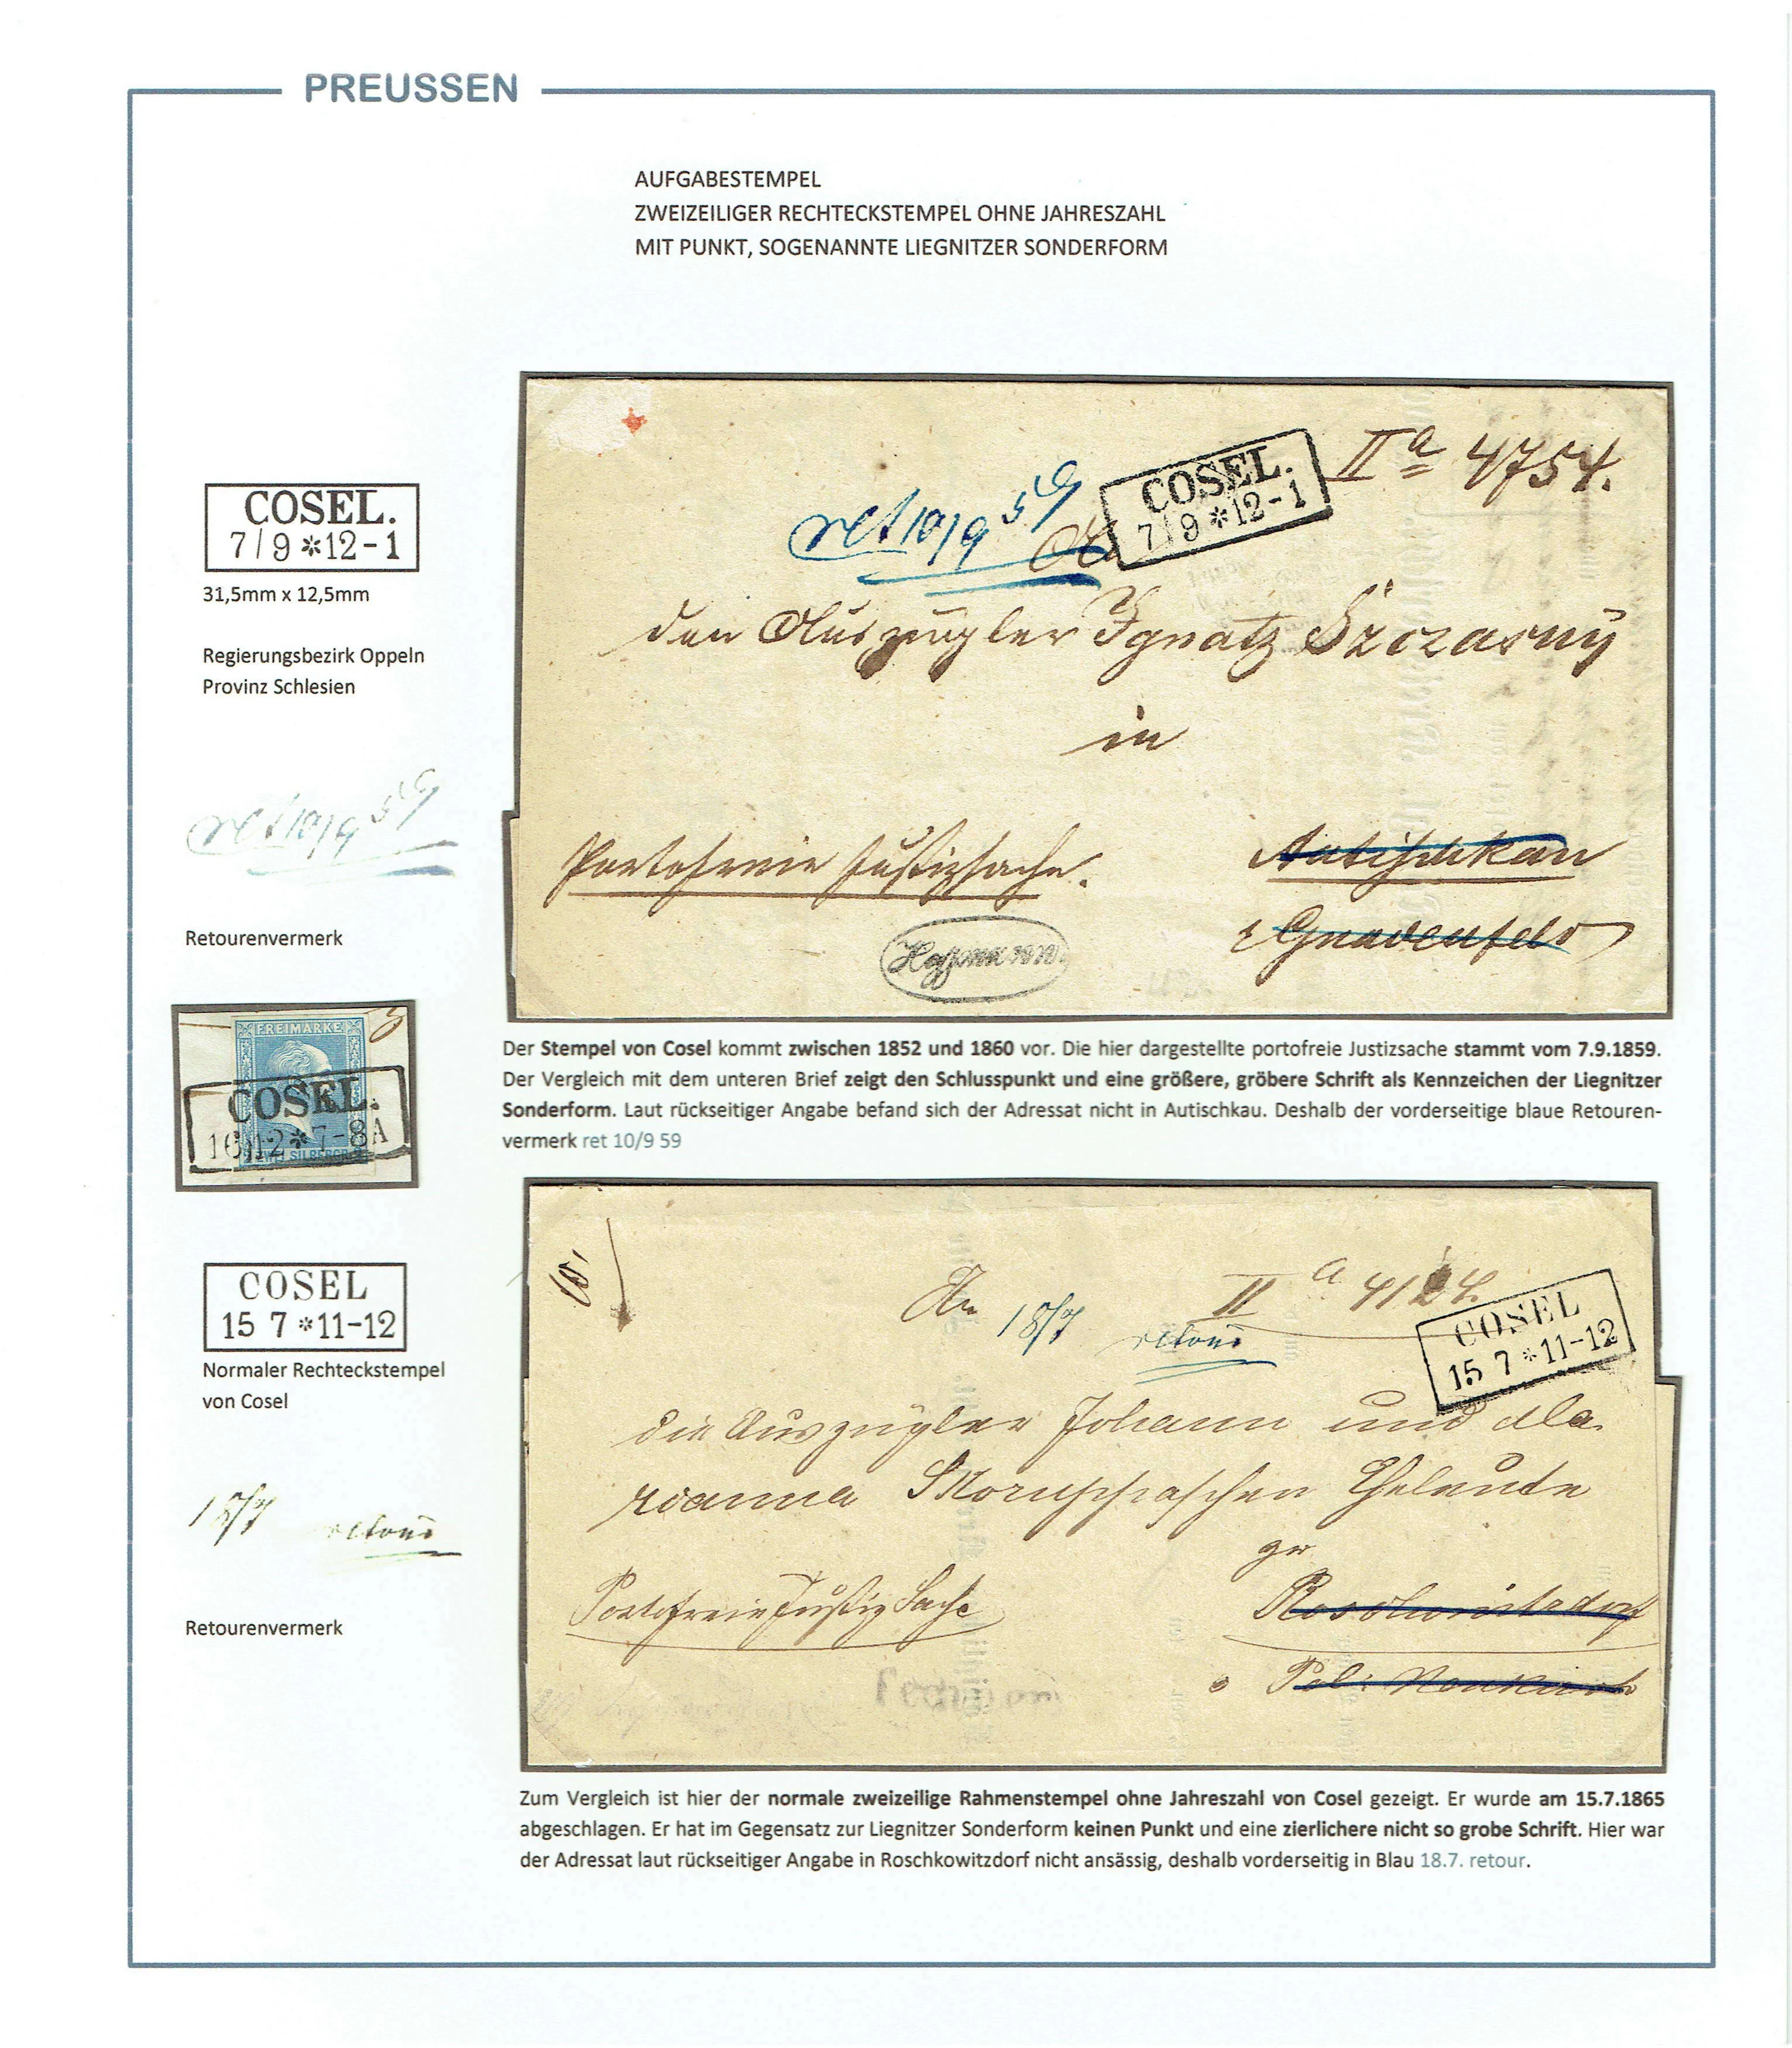 PREUSSEN
AUFGABESTEMPEL
ZWEIZEILIGER RECHTECKSTEMPEL OHNE JAHRESZAHL
MIT PUNKT, SOGENANNTE LIEGNITZER SONDERFORM
COSEL.
7/9 *12-1
31,5mm x 12,5mm
Regierungsbezirk Oppeln
Provinz Schlesien
ret 10/9 59
Retourenvermerk
FREIMARKE
COSEL.
16 12 * 7-8A
ZWEI SILBERGR.
COSEL
15 7 *11-12
Normaler Rechteckstempel
von Cosel
18/7 retour
Retourenvermerk
IIa 4754.
COSEL.
7/9 *12-1
ret 10/9 59
An
den Auszügler Ignatz Szczasny
in
Portofreie Justizsache.
Autischkau
Gnadenfeld
Hoffmann
Der Stempel von Cosel kommt zwischen 1852 und 1860 vor. Die hier dargestellte portofreie Justizsache stammt vom 7.9.1859.
Der Vergleich mit dem unteren Brief zeigt den Schlusspunkt und eine größere, gröbere Schrift als Kennzeichen der Liegnitzer
Sonderform. Laut rückseitiger Angabe befand sich der Adressat nicht in Autischkau. Deshalb der vorderseitige blaue Retouren-
vermerk ret 10/9 59
An
II a
18/7 retour
COSEL
15 7 *11-12
die Auszügler Johann und Ma
rianna Skoruppaschen Eheleute
zu
Portofreie Justiz Sache
Roschowitzdorf
Pol: Neukirch
Zum Vergleich ist hier der normale zweizeilige Rahmenstempel ohne Jahreszahl von Cosel gezeigt. Er wurde am 15.7.1865
abgeschlagen. Er hat im Gegensatz zur Liegnitzer Sonderform keinen Punkt und eine zierlichere nicht so grobe Schrift. Hier war
der Adressat laut rückseitiger Angabe in Roschkowitzdorf nicht ansässig, deshalb vorderseitig in Blau 18.7. retour.